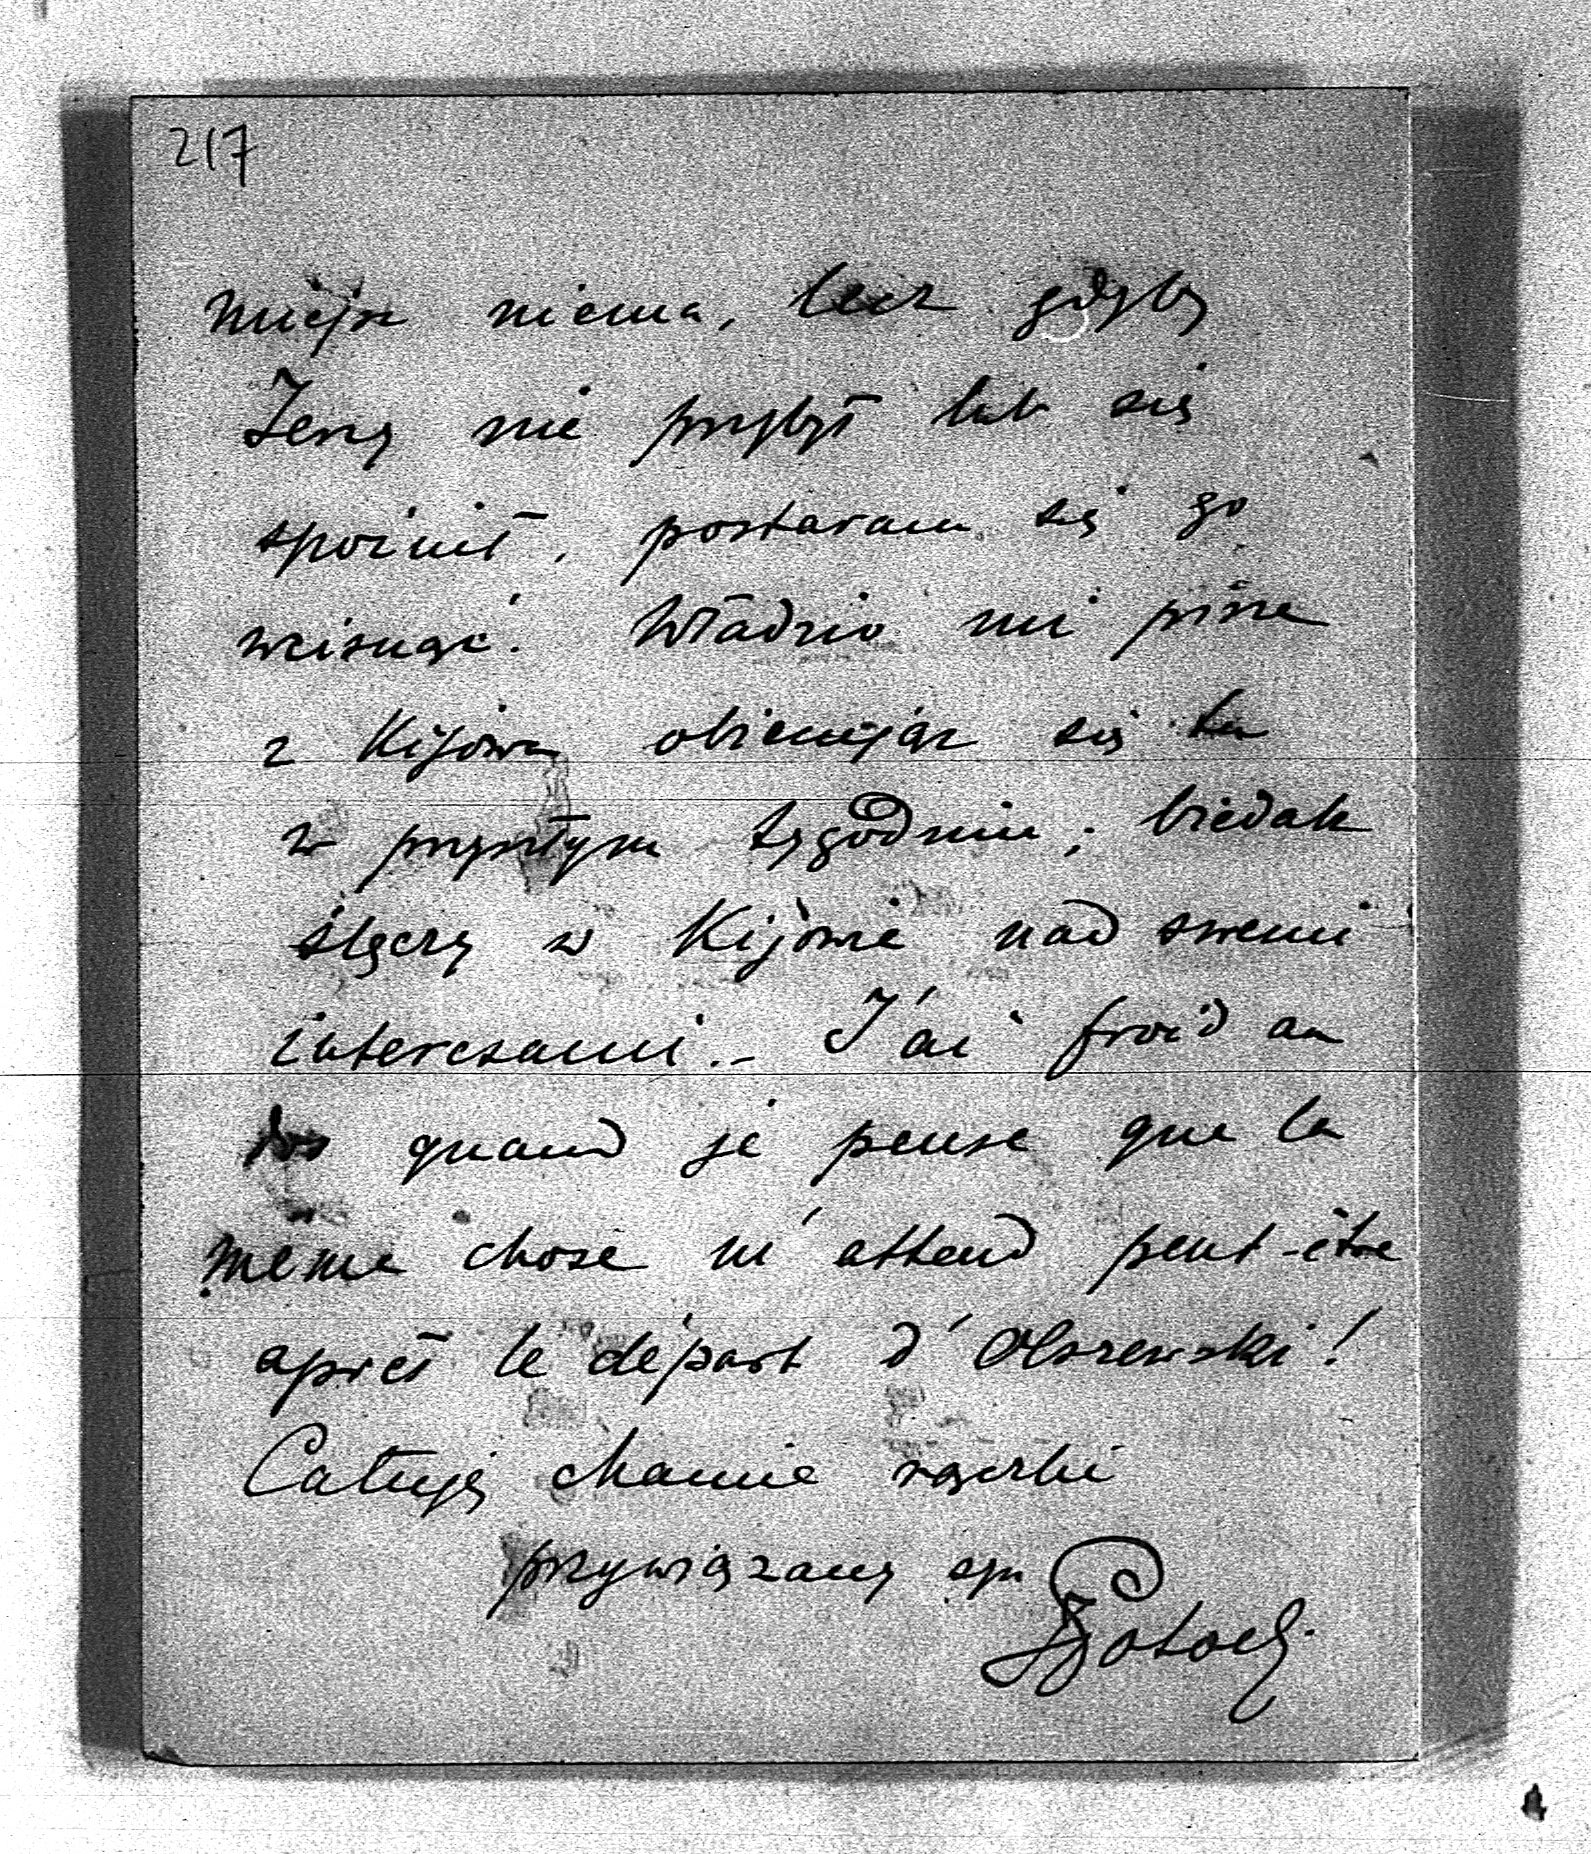 217
miejsc niema, lecz gdyby
Jerzy nie przybył lub się
spóźnił, postaram się go
wcisnąć. Władzio mi pisze
z Kijowa obiecując się tu
w przyszłym tygodniu; biedak
ślęczy w Kijowie nad swemi
interesami. – J'ai froid au
dos quand je pense que la
même chose m'attend peut-être
après le départ d'Olszewski!
Całuję Mamie rączki
przywiązany syn
JPotocki